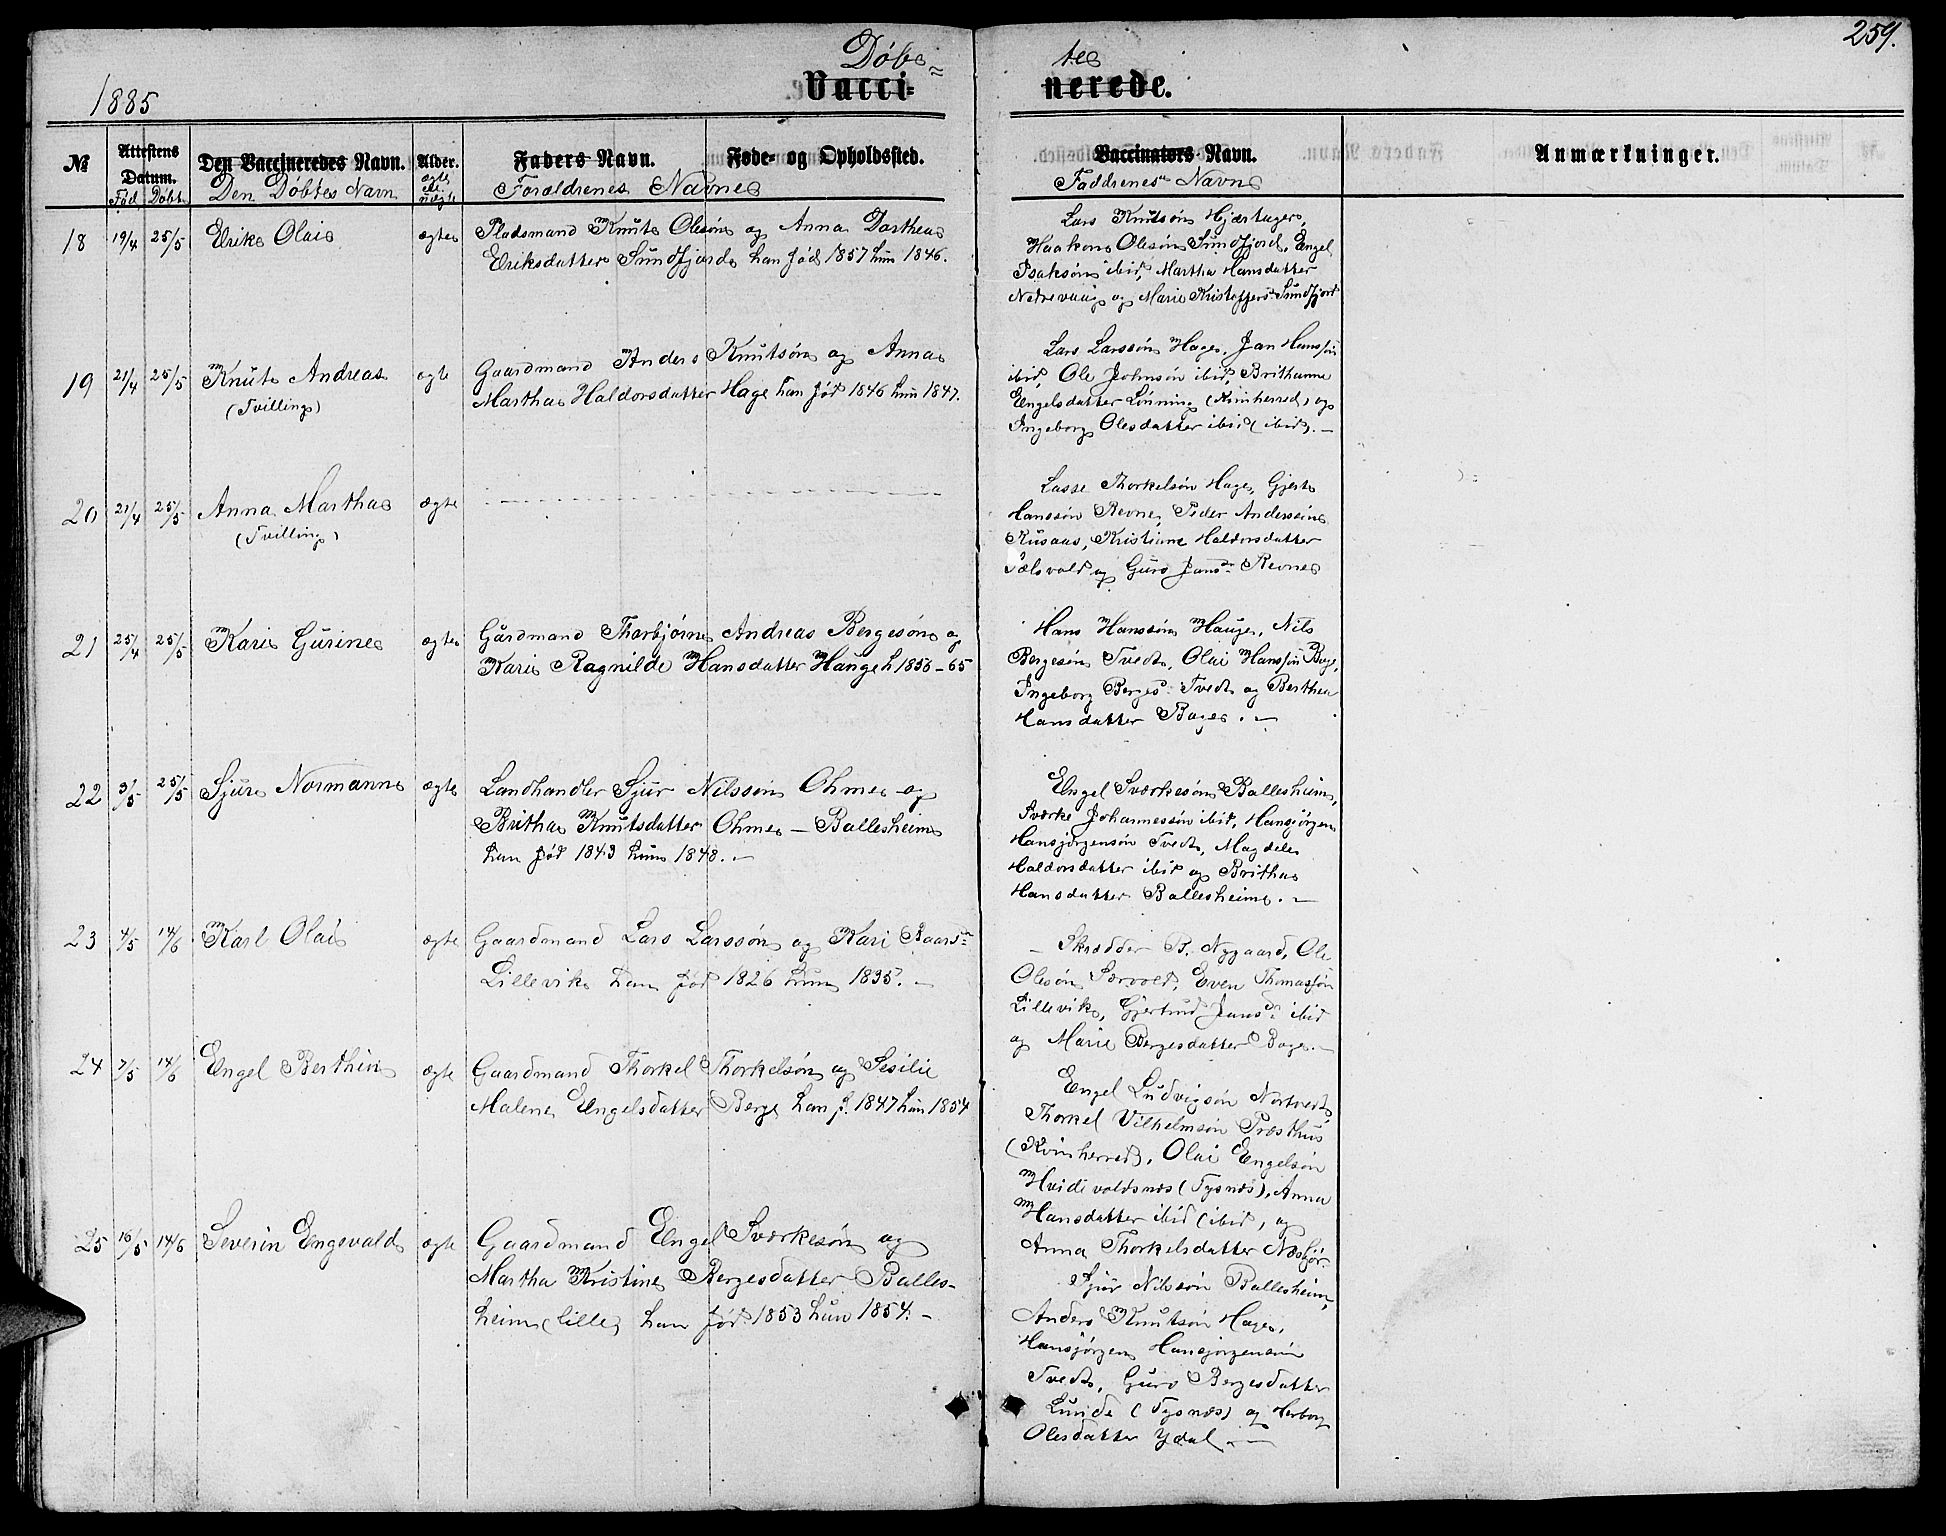 259.
1885
Døbe= tes
Vacci= nerede.
№ Attestens Datum. Den Vaccineredes Navn. Alder. Faders Navn. Føde- og Opholdssted. Vaccinators Navn. Anmærkninger.
Fød. Døbt Den Døbtes Navn ægte el. uægte Forældrenes Navne Faddrenes Navne
18 19/4 25/5 Erik Olai ægte Pladsmand Knut Olesøn og Anna Dorthea
Eriksdatter Sundfjord han fød 1857 hun 1846.
Lars Knutsøn Hjærtager,
Haakon Olesøn Sundfjord, Engel
Isaksøn ibid, Martha Hansdatter
Nedrevaag og Marie Kristoffersd. Sundfjord
19 21/4 25/5 Knut Andreas ægte Gaardmand Anders Knutsøn og Anna
(Tvilling)
Martha Haldorsdatter Hage han fød 1846 hun 1847.
Lars Larssøn Hage, Jan Hanssøn
ibid, Ole Johnsøn ibid, Brithanne
Engelsdatter Lønning (Kvinherred) og
Ingeborg Olesdatter ibid (ibid). —
20 21/4 25/5 Anna Martha ægte
(Tvilling)
Lasse Thorkelsøn Hage, Gjert
Hanssøn Revne, Peder Anderssøn
Kusaas, Kristiane Haldorsdatter
og Guro Jansd. Revne
21 25/4 25/5 Kari Gurine ægte Gårdmand Thorbjørn Andreas Bergesøn og
Kari Ragnilde Hansdatter Hauge f. 1856 - 65
Hans Hanssøn Hauge, Nils
Bergesøn Tvedt, Olai Hanssøn Bage,
Ingeborg Bergesd. Tvedt og Berthea
Hansdatter Bage. —
22 3/5 25/5 Sjur Normann ægte Landhandler Sjur Nilssøn Ohme og
Britha Knutsdatter Ohme — Ballesheim
han fød 1843 hun 1848. —
Engel Sværkesøn Ballesheim,
Sværke Johannessøn ibid, Hansjørgen
Hansjørgensøn Tvedt, Magdele
Haldorsdatter ibid og Britha
Hansdatter Ballesheim. —
23 4/5 14/6 Karl Olai ægte Gaardmand Lars Larssøn og Kari Baarsd.
Lillevik han fød 1826 hun 1835. —
— Skrædder B. Nygaard, Ole
Olesøn Sørvold, Even Thomassøn
Lillevik, Gjertrud Jansd. ibid
og Marie Bergesdatter Bage. —
24 7/5 14/6 Engel Berthin ægte Gaardmand Thorkel Thorkelsøn og Sesilie
Malene Engelsdatter Berge han f. 1847 hun 1854
Engel Ludvigsøn Nortvedt,
Thorkel Vilhelmsøn Præsthus
(Kvinherred), Olai Engelsøn
Hvidevoldsnæs (Tysnæs), Anna
Hansdatter ibid (ibid, og
Anna Thorkelsdatter Næsbør.
25 16/5 14/6 Severin Engevald ægte Gaardmand Engel Sværkesøn og
Martha Kristine Bergesdatter Balles-
heim (lille) han fød 1853 hun 1854. —
Sjur Nilssøn Ballesheim,
Anders Knutsøn Hage,
Hansjørgen Hansjørgensøn
Tvedt, Guro Bergesdatter
Lunde (Tysnæs) og Herborg
Olesdatter Ydal. —